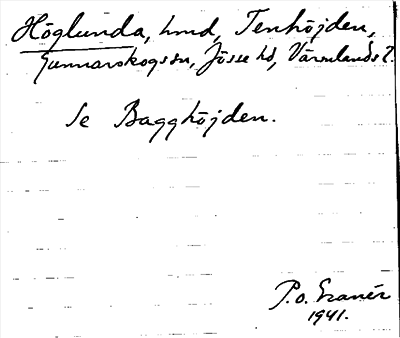 Höglunda, hmd, Tenhöjden,
Gunnarskogssn, Jösse hd, Värmlands l.
Se Bagghöjden.
P.o. Granér
1941.